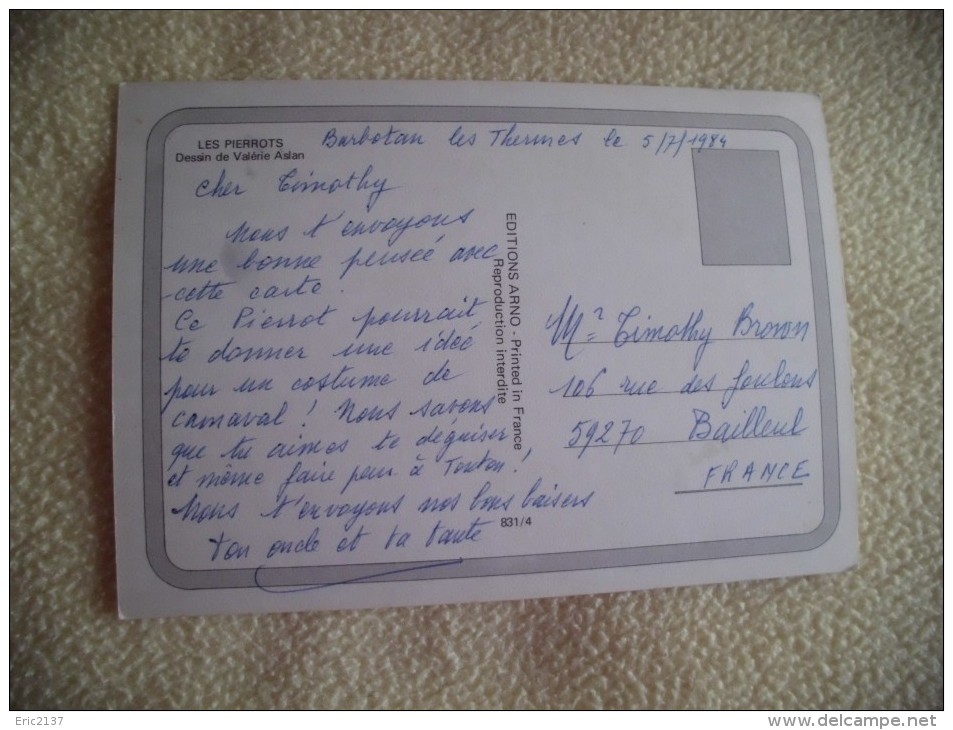 LES PIERROTS
Dessin de Valérie Aslan
Barbotan les Thermes le 5/7/1984
Cher Timothy
Nous t'envoyons
une bonne pensée avec
cette carte.
Ce Pierrot pourrait
te donner une idée
pour un costume de
carnaval! Nous savons
que tu aimes te déguiser
et même faire peur à Tonton!
Nous t'envoyons nos bons baisers
Ton oncle et ta tante
EDITIONS ARNO - Printed in France
Reproduction interdite
831/4
Mr Timothy Brown
106 rue des foulons
59270 Bailleul
FRANCE
Eric2137
www.delcampe.net